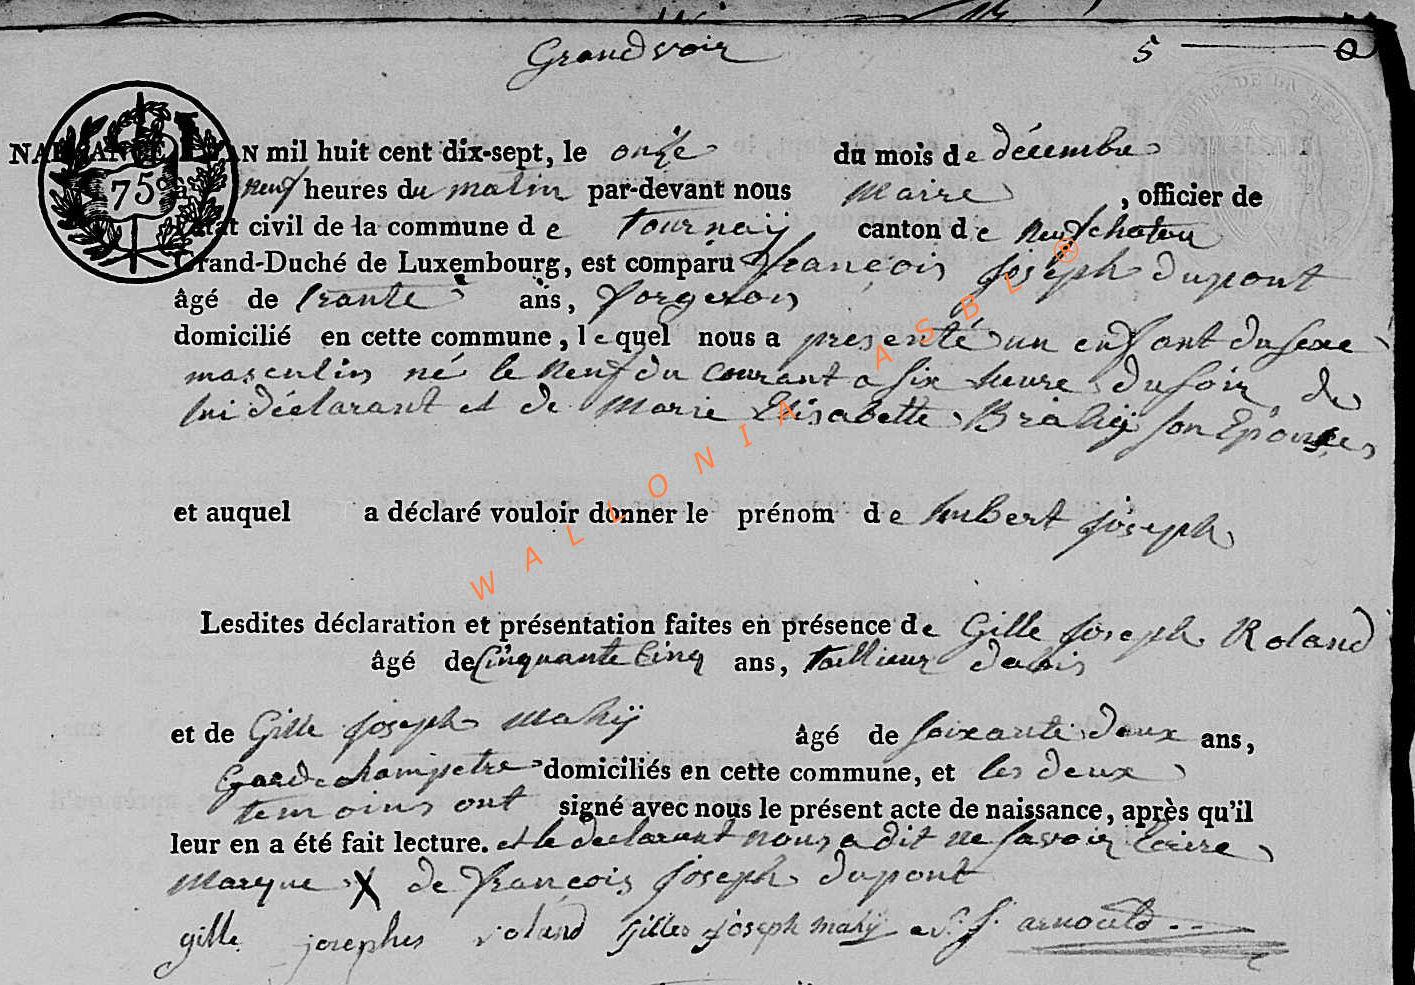 Grandvoir 5
NAISSANCE L'AN mil huit cent dix-sept, le onze du mois de décembre
75
à neuf heures du matin par-devant nous Maire , officier de
l'état civil de la commune de tournay canton de neufchateau
Grand-Duché de Luxembourg, est comparu françois joseph dupont
âgé de trante ans, forgeron
domicilié en cette commune, lequel nous a presenté un enfant du sexe
masculin né le neuf du courant a six heure du soir de
lui déclarant et de Marie Elisabette son Epouse
et auquel a déclaré vouloir donner le prénom de huBert joseph
Lesdites déclaration et présentation faites en présence de Gille joseph Roland
âgé de Cinquante Cinq ans, taillieur
et de Gille joseph Mahÿ âgé de soixante deux ans,
Gardechampetre domiciliés en cette commune, et les deux
temoins ont signé avec nous le présent acte de naissance, après qu'il
leur en a été fait lecture. et le declarant nous a dit ne savoir Ecrire
Marque X de françois joseph dupont
gille josephes roland gilles joseph mahÿ arnould
WALLONIA ASBL ®